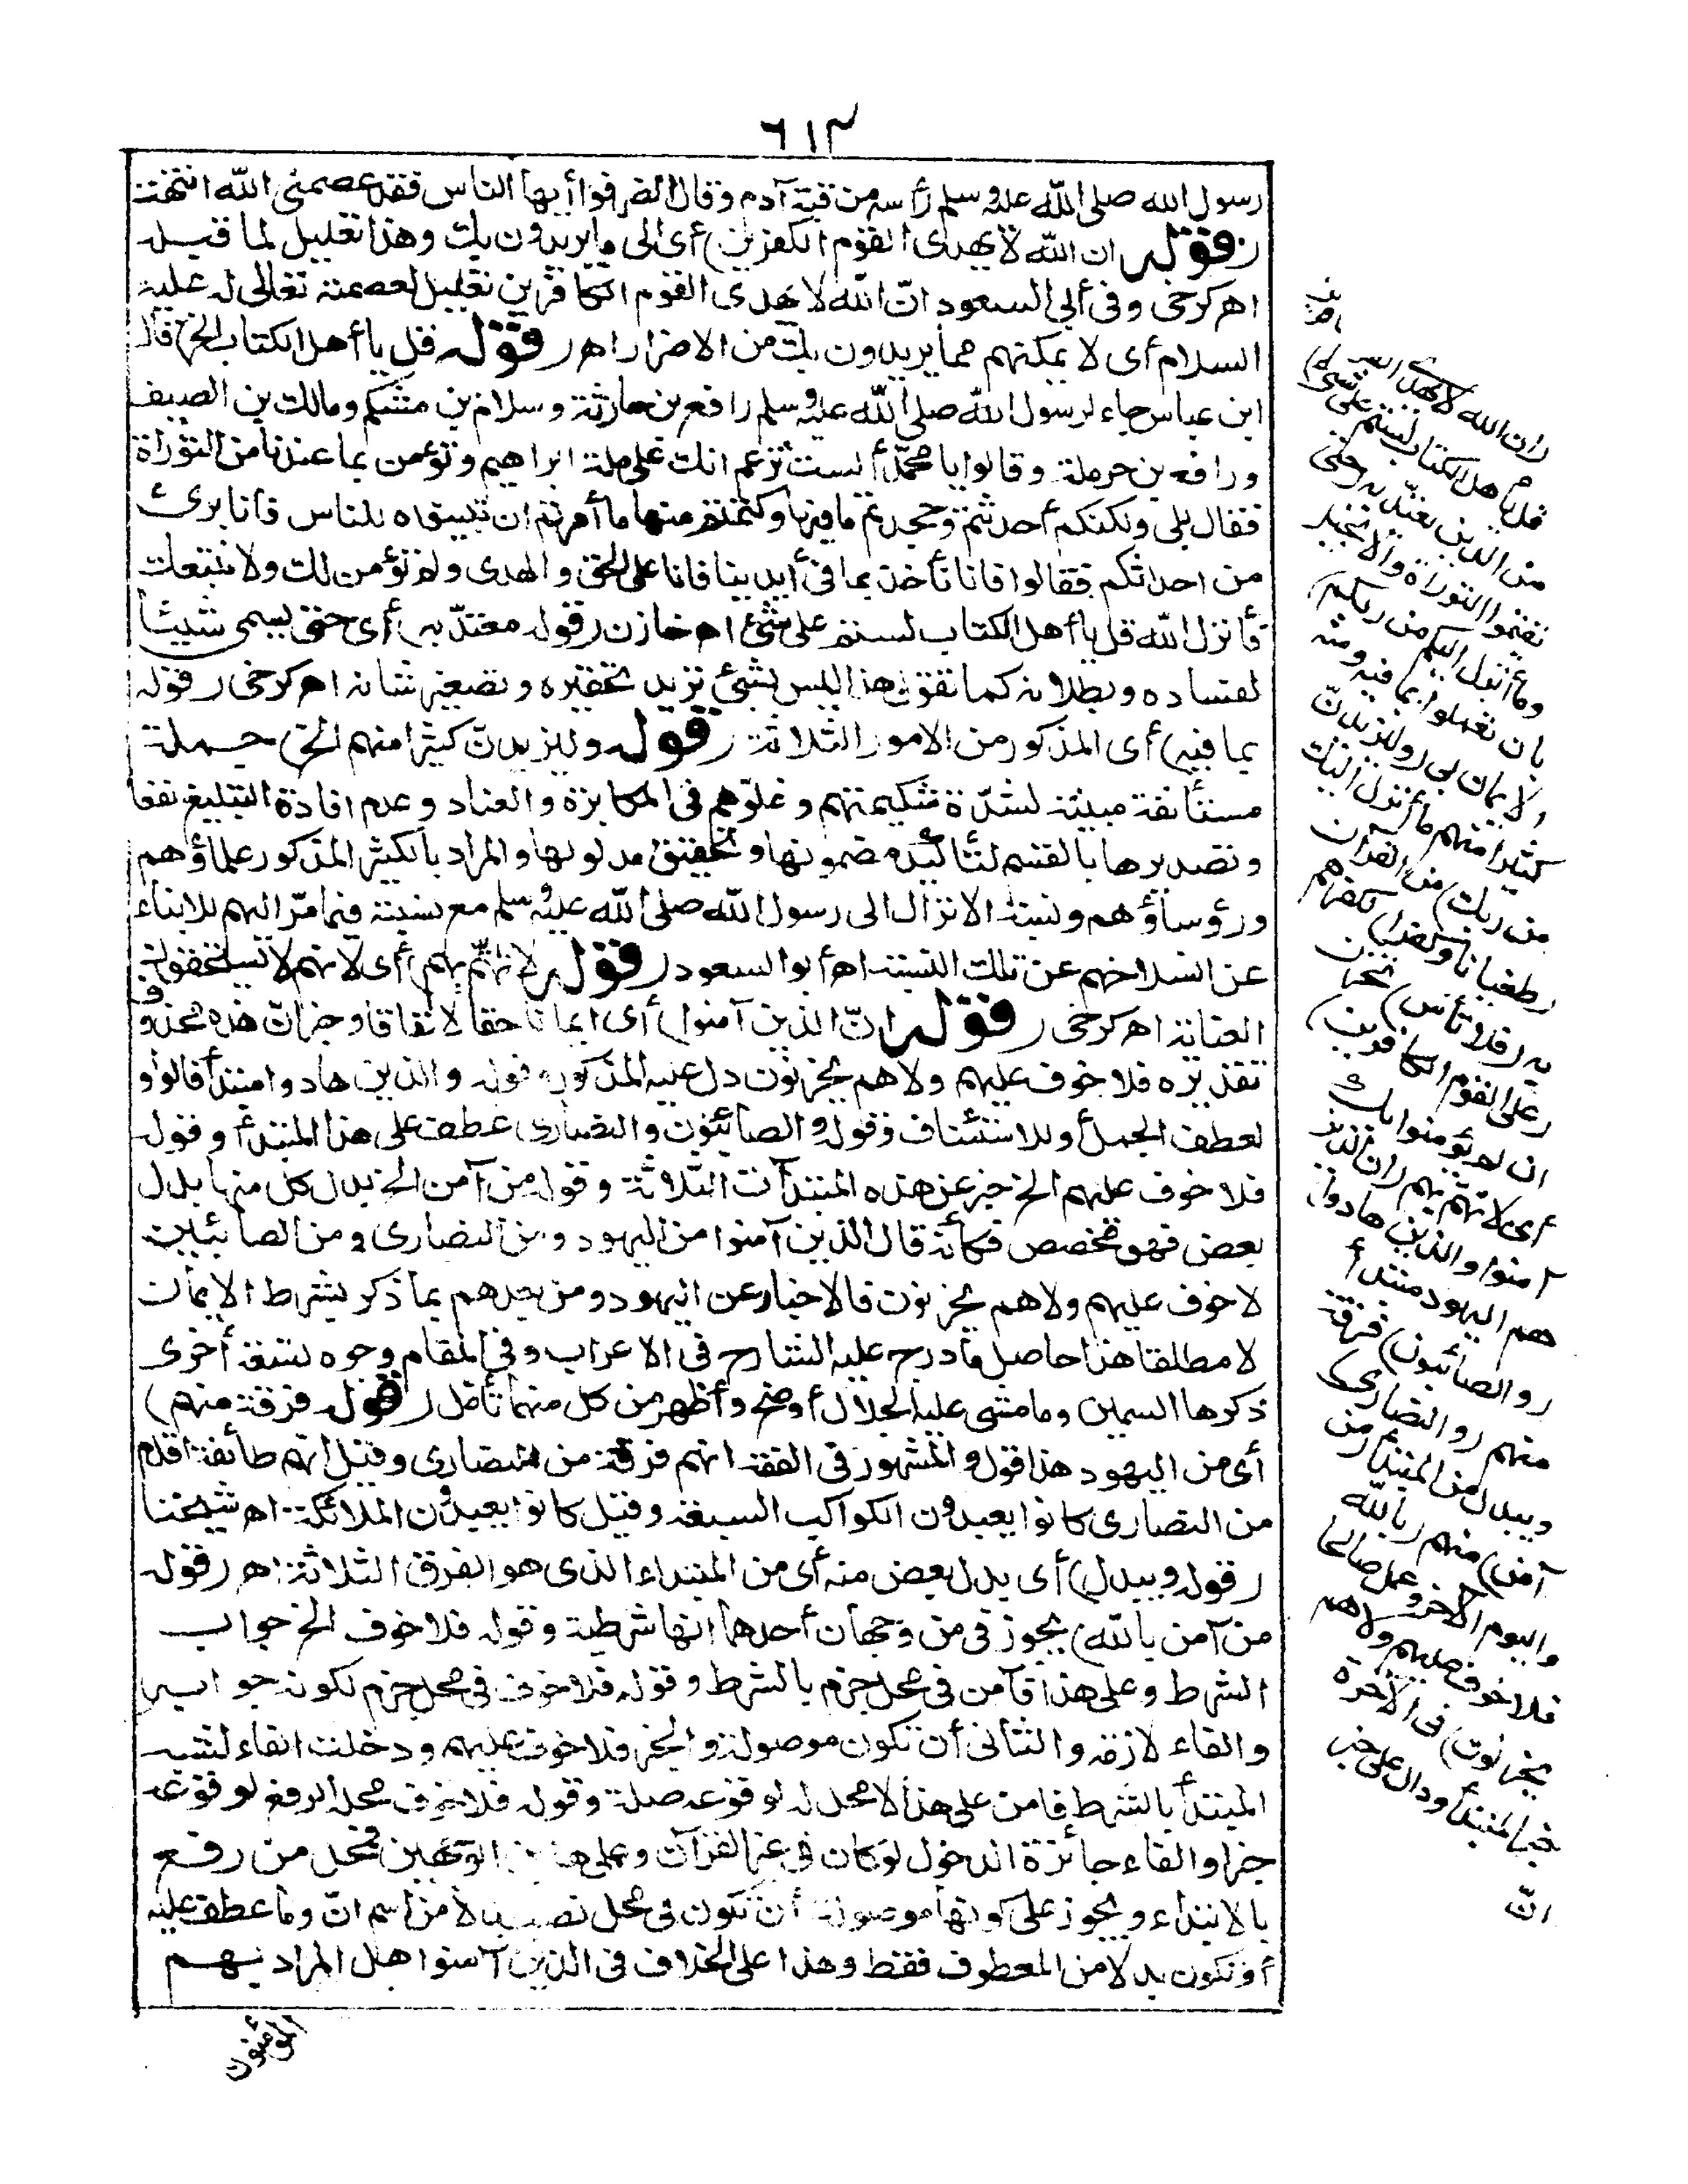 ٦١٣
رسول الله صلى الله عليه وسلم رأسه من قبة آدم وقال انصرفوا أيها الناس فقد عصمني الله انتهت
(قوله ان الله لا يهدى القوم الكفرين) أى الى ما يريدون بك وهذا تعليل لما قبله
اهـ كرخى وفى أبى السعود انّ الله لا يهدى القوم الكافرين تعليل لعصمته تعالى له عليه
السلام أى لا يمكنهم مما يريدون بك من الاضرار اهـ (قوله قل يا أهل الكتاب الخ) قال
ابن عباس جاء لرسول الله صلى الله عليه وسلم رافع بن حارثة وسلام بن مشكم ومالك بن الصيف
ورافع بن حرملة وقالوا يا محمد ألست تزعم انك على ملة ابراهيم وتؤمن بما عندنا من التوراة
فقال بلى ولكنكم أحدثتم وجحدتم ما فيها وكتمتم منها ما أمرتم ان تبينوه للناس فأنا برئ
من احداثكم فقالوا فانا نأخذ بما فى أيدينا فانا على الحق والهدى ولا نؤمن لك ولا نتبعك
فأنزل الله قل يا أهل الكتاب لستم على شئ اهـ خازن (قوله معتدّ به) أى حتى يسمى شيئا
لفساده وبطلانه كما تقول هذا ليس بشئ تريد تحقيره وتصغير شانه اهـ كرخى (قوله
بما فيه) أى المذكور من الامور الثلاثة (قوله وليزيدنّ كثيرا منهم الخ) جملة
مستأنفة مبينة لشدّة شكيمتهم وغلوّهم فى المكابرة والعناد وعدم افادة التبليغ نفعا
وتصديرها بالقسم لتأكيد مضمونها وتحقيق مدلولها والمراد بالكثير المذكور علماؤهم
ورؤساؤهم ونسبة الانزال الى رسول الله صلى الله عليه وسلم مع نسبته فيما مرّ اليهم للانباء
عن انسلاخهم عن تلك النسبة اهـ أبو السعود (قوله لا تهتمّ بهم) أى لانهم لا يستحقون
العناية اهـ كرخى (قوله انّ الذين آمنوا) أى ايمانا حقا لا نفاقا وخبر انّ هذه محذوف
تقديره فلا خوف عليهم ولا هم يحزنون دل عليه المذكور وقوله والذين هادوا مبتدأ فالواو
لعطف الجمل أو للاستئناف وقوله والصابئون والنصارى عطف على هذا المبتدأ وقوله
فلا خوف عليهم الخ خبر عن هذه المبتدآت الثلاثة وقوله من آمن الخ بدل كل منها بدل
بعض فهو مخصص فكأنه قال الذين آمنوا من اليهود ومن النصارى ومن الصابئين
لا خوف عليهم ولا هم يحزنون فالاخبار عن اليهود ومن بعدهم بما ذكر بشرط الايمان
لا مطلقا هذا حاصل ما درج عليه الشارح فى الاعراب وفى المقام وجوه تسعة أخرى
ذكرها السمين وما مشى عليه الجلال أوضح وأظهر من كل منها تأمل (قوله فرقة منهم)
أى من اليهود هذا قول والمشهور فى الفقه انهم فرقة من النصارى وقيل انهم طائفة أقدم
من النصارى كانوا يعبدون الكواكب السبعة وقيل كانوا يعبدون الملائكة اهـ شيخنا
(قوله ويبدل) أى بدل بعض منه أى من المبتداء الذى هو الفرق الثلاثة اهـ (قوله
من آمن بالله) يجوز فى من وجهان أحدهما انها شرطية وقوله فلا خوف الخ جواب
الشرط وعلى هذا فآمن فى محل جزم بالشرط وقوله فلا خوف فى محل جزم لكونه جوابه
والفاء لازمة والثانى أن تكون موصولة والخبر فلا خوف عليهم ودخلت الفاء لشبه
المبتدأ بالشرط فآمن على هذا لا محل له لوقوعه صلة وقوله فلا خوف محله الرفع لوقوعه
خبرا والفاء جائزة الدخول لو كان فى غير القرآن وعلى هذين الوجهين فمحل من رفع
بالابتداء ويجوز على كونها موصولة أن تكون فى محل نصب بدلا من اسم انّ وما عطف عليه
أو تكون بدلا من المعطوف فقط وهذا على الخلاف فى الذين آمنوا هل المراد بهم
المؤمنون
(ان الله لا يهدى القوم
قل يا أهل الكتاب لستم على شئ)
من الدين معتدّ به (حتى
تقيموا التوراة والانجيل
وما أنزل اليكم من ربكم)
بأن تعملوا بما فيه ومنه
الايمان بى (وليزيدنّ
كثيرا منهم ما أنزل اليك
من ربك) من القرآن
(طغيانا وكفرا) لكفرهم
به (فلا تأس) تحزن
(على القوم الكافرين)
ان لم يؤمنوا بك
أى لا تهتم بهم (ان الذين
آمنوا والذين هادوا)
هم اليهود مبتدأ
(والصابئون) فرقة
منهم (والنصارى)
ويبدل من المبتدأ (من
آمن) منهم (بالله
واليوم الآخر وعمل صالحا
فلا خوف عليهم ولا هم
يحزنون) فى الآخرة
خبر المبتدأ ودال على خبر
انّ